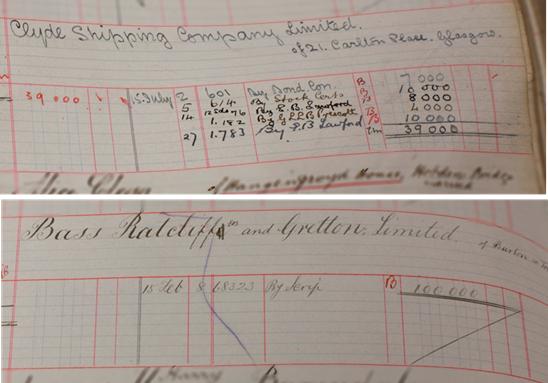 Clyde Shipping Company Limited.
of 21. Carlton Place. Glasgow.
39 000 15 July 2 601 By Bond Con. B 7 000
5 614 By Stock Certs B 10 000
By S.B. Lawford B 8 000
14 1.182 By 4 000
27 1.783 By S.B Lawford 10 000
39 000
of House,
Bass Ratcliff and Gretton, Limited of Burton
15 Feb 8 68323 By Scrip B 100,000
Harry